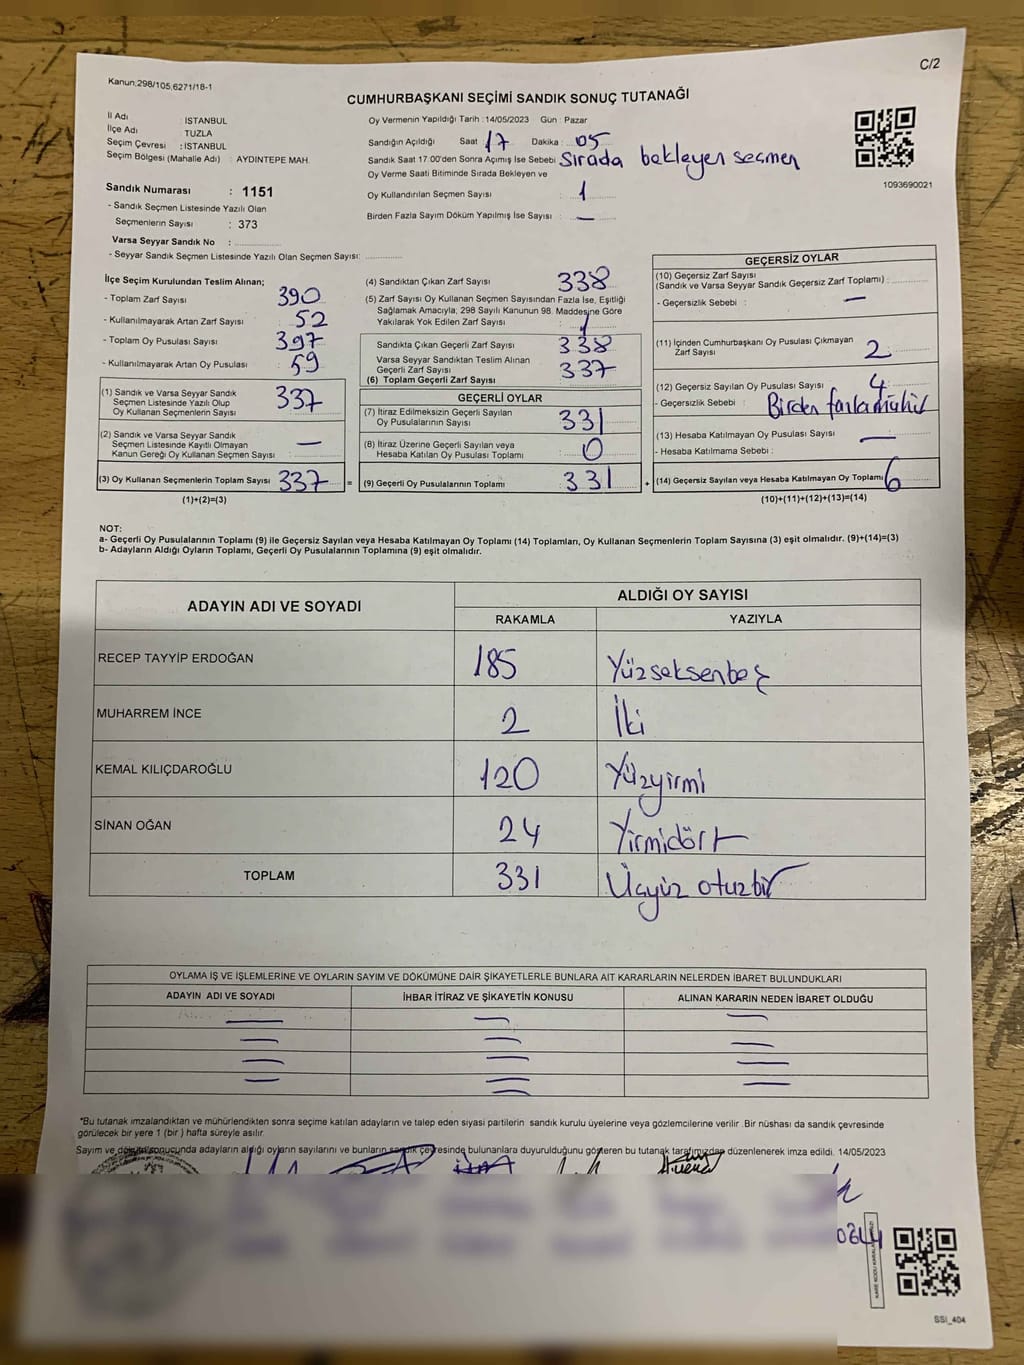 C/2
Kanun:298/105,6271/18-1
CUMHURBAŞKANI SEÇİMİ SANDIK SONUÇ TUTANAĞI
İl Adı : İSTANBUL
İlçe Adı : TUZLA
Seçim Çevresi : İSTANBUL
Seçim Bölgesi (Mahalle Adı) : AYDINTEPE MAH.
Sandık Numarası : 1151
- Sandık Seçmen Listesinde Yazılı Olan
Seçmenlerin Sayısı : 373
Varsa Seyyar Sandık No :
- Seyyar Sandık Seçmen Listesinde Yazılı Olan Seçmen Sayısı:
Oy Vermenin Yapıldığı Tarih : 14/05/2023 Gün : Pazar
Sandığın Açıldığı Saat 17 Dakika : 05
Sandık Saat 17.00'den Sonra Açımış İse Sebebi Sırada bekleyen seçmen
Oy Verme Saati Bitiminde Sırada Bekleyen ve
Oy Kullandırılan Seçmen Sayısı : 1
Birden Fazla Sayım Döküm Yapılmış İse Sayısı : —
1093690021
İlçe Seçim Kurulundan Teslim Alınan;
- Toplam Zarf Sayısı 390
- Kullanılmayarak Artan Zarf Sayısı 52
- Toplam Oy Pusulası Sayısı 397
- Kullanılmayarak Artan Oy Pusulası 59
(1) Sandık ve Varsa Seyyar Sandık
Seçmen Listesinde Yazılı Olup
Oy Kullanan Seçmenlerin Sayısı 337
(2) Sandık ve Varsa Seyyar Sandık
Seçmen Listesinde Kayıtlı Olmayan
Kanun Gereği Oy Kullanan Seçmen Sayısı —
(3) Oy Kullanan Seçmenlerin Toplam Sayısı 337 =
(1)+(2)=(3)
(4) Sandıktan Çıkan Zarf Sayısı 338
(5) Zarf Sayısı Oy Kullanan Seçmen Sayısından Fazla İse, Eşitliği
Sağlamak Amacıyla; 298 Sayılı Kanunun 98. Maddesine Göre
Yakılarak Yok Edilen Zarf Sayısı 1
Sandıkta Çıkan Geçerli Zarf Sayısı 338
Varsa Seyyar Sandıktan Teslim Alınan
Geçerli Zarf Sayısı 337
(6) Toplam Geçerli Zarf Sayısı
GEÇERLİ OYLAR
(7) İtiraz Edilmeksizin Geçerli Sayılan
Oy Pusulalarının Sayısı 331
(8) İtiraz Üzerine Geçerli Sayılan veya
Hesaba Katılan Oy Pusulası Toplamı 0
(9) Geçerli Oy Pusulalarının Toplamı 331 +
GEÇERSİZ OYLAR
(10) Geçersiz Zarf Sayısı
(Sandık ve Varsa Seyyar Sandık Geçersiz Zarf Toplamı) :
- Geçersizlik Sebebi : —
(11) İçinden Cumhurbaşkanı Oy Pusulası Çıkmayan
Zarf Sayısı 2
(12) Geçersiz Sayılan Oy Pusulası Sayısı 4
- Geçersizlik Sebebi : Birden fazla mühür
(13) Hesaba Katılmayan Oy Pusulası Sayısı —
- Hesaba Katılmama Sebebi :
(14) Geçersiz Sayılan veya Hesaba Katılmayan Oy Toplamı 6
(10)+(11)+(12)+(13)=(14)
NOT:
a- Geçerli Oy Pusulalarının Toplamı (9) ile Geçersiz Sayılan veya Hesaba Katılmayan Oy Toplamı (14) Toplamları, Oy Kullanan Seçmenlerin Toplam Sayısına (3) eşit olmalıdır. (9)+(14)=(3)
b- Adayların Aldığı Oyların Toplamı, Geçerli Oy Pusulalarının Toplamına (9) eşit olmalıdır.
ADAYIN ADI VE SOYADI ALDIĞI OY SAYISI
RAKAMLA YAZIYLA
RECEP TAYYİP ERDOĞAN 185 Yüzseksenbeş
MUHARREM İNCE 2 İki
KEMAL KILIÇDAROĞLU 120 Yüzyirmi
SİNAN OĞAN 24 Yirmidört
TOPLAM 331 Üçyüz otuzbir
OYLAMA İŞ VE İŞLEMLERİNE VE OYLARIN SAYIM VE DÖKÜMÜNE DAİR ŞİKAYETLERLE BUNLARA AİT KARARLARIN NELERDEN İBARET BULUNDUKLARI
ADAYIN ADI VE SOYADI İHBAR İTİRAZ VE ŞİKAYETİN KONUSU ALINAN KARARIN NEDEN İBARET OLDUĞU
*Bu tutanak imzalandıktan ve mühürlendikten sonra seçime katılan adayların ve talep eden siyasi partilerin sandık kurulu üyelerine veya gözlemcilerine verilir. Bir nüshası da sandık çevresinde
görülecek bir yere 1 (bir) hafta süreyle asılır.
Sayım ve döküm sonucunda adayların aldığı oyların sayılarını ve bunların sandık çevresinde bulunanlara duyurulduğunu gösteren bu tutanak tarafımızdan düzenlenerek imza edildi. 14/05/2023
SSI_404